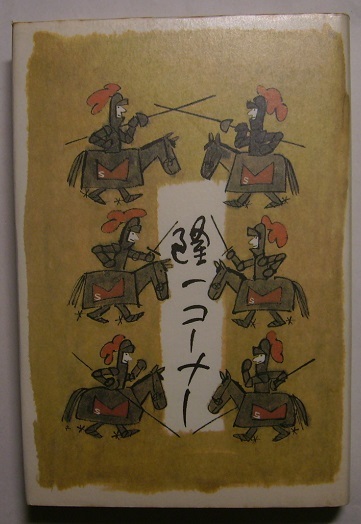 隆一コーナー